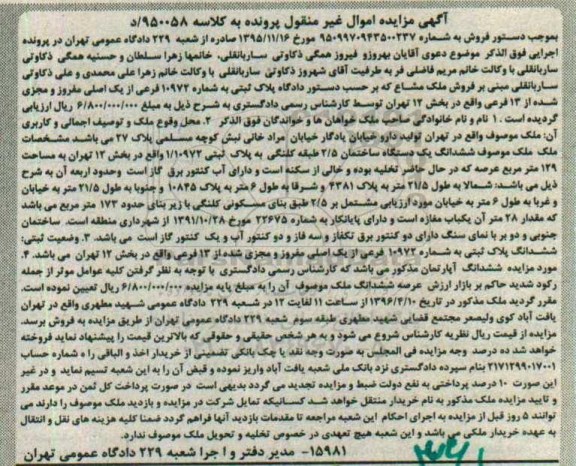 آگهی مزایده اموال غیر منقول پرونده به کلاسه ۹۵۰۰۵۸/د
بموجب دستور فروش به شماره ۹۵۰۹۹۷۰۹۴۳۵۰۰۲۳۷ مورخ ۱۳۹۵/۱۱/۱۶ صادره از شعبه ۲۲۹ دادگاه عمومی تهران در پرونده
اجرایی فوق الذکر موضوع دعوی آقایان بهروزو فیروز همگی ذکاوتی ساربانقلی، خانمها زهرا سلطان و حسنیه همگی ذکاوتی
ساربانقلی با وکالت خانم مریم فاضلی فر به طرفیت آقای شهروز ذکاوتی ساربانقلی با وکالت خانم زهرا علی محمدی و علی ذکاوتی
ساربانقلی مبنی بر فروش ملک مشاعی که بر حسب دستور دادگاه پلاک ثبتی به شماره ۱۰۹۷۲ فرعی از یک اصلی مفروز و مجزی
شده از ۱۳ فرعی واقع در بخش ۱۲ تهران توسط کارشناس رسمی دادگستری به شرح ذیل به مبلغ ۶/۸۰۰/۰۰۰/۰۰۰ ریال ارزیابی
گردیده است. ۱ نام و نام خانوادگی صاحب ملک خواهان ها و خواندگان فوق الذکر ۲. محل وقوع ملک و توصیف اجمالی و کاربری
آن: ملک موصوف واقع در تهران تولید دارو خیابان یادگار خیابان مراد خانی نبش کوچه مسلمی پلاک ۲۷ می باشد مشخصات
ملک ملک موصوف ششدانگ یک دستگاه ساختمان ۲/۵ طبقه کلنگی به پلاک ثبتی ۱/۱۰۹۷۲ واقع در بخش ۱۲ تهران به مساحت
۱۲۹ متر مربع عرصه که در حال حاضر تخلیه بوده و خالی از سکنه است و دارای آب کنتور برق گاز است وحدود اربعه آن به شرح
ذیل می باشد: شمالا به طول ۲۱/۵ متر به پلاک ۴۳۸۱ و شرقا به طول ۶ متر به پلاک ۱۰۸۴۵ و جنوبا به طول ۲۱/۵ متر به خیابان
و غربا به طول ۶ متر به خیابان مورد ارزیابی مشتمل بر ۲/۵ طبق بنای مسکونی کلنگی با زیر بنای حدود ۱۷۳ متر مربع می باشد
که مقدار ۲۸ متر آن یکباب مغازه است و دارای پایانکار به شماره ۲۲۶۷۵ مورخ ۱۳۹۱/۱۰/۲۸ از شهرداری منطقه است. ساختمان
جنوبی و دو بر با نمای سنگ دارای دو کنتور برق تکفاز و سه فاز و دو کنتور آب و یک کنتور گاز است می باشد. ۳. وضعیت ثبتی:
ششدانگ پلاک ثبتی به شماره ۱۰۹۷۲ فرعی از یک اصلی مفروز و مجزی شده از ۱۳فرعی واقع در بخش ۱۲ تهران می باشد. ۴.
مورد مزایده ششدانگ آپارتمان مذکور می باشد که کارشناس رسمی دادگستری با توجه به نظر گرفتن کلیه عوامل موثر از جمله
رکود شدید حاکم بر بازار ارزش عرصه ششدانگ ملک موصوف آن را به مبلغ پایه مزایده ۶/۸۰۰/۰۰۰/۰۰۰ ریال تعیین نموده است.
مقرر گردید ملک مذکور در تاریخ ۱۳۹۶/۴/۱۰ از ساعت ۱۱ لغایت ۱۲ در شعبه ۲۲۹ دادگاه عمومی شهید مطهری واقع در تهران
یافت آباد کوی ولیعصر مجتمع قضایی شهید مطهری طبقه سوم شعبه ۲۲۹ دادگاه عمومی تهران از طریق مزایده به فروش برسد.
مزایده از قیمت ریال نظریه کارشناس شروع می شود و به هر شخص حقیقی و حقوقی که بالاترین قیمت را پیشنهاد نماید فروخته
خواهد شد ده درصد وجه مزایده فی المجلس به صورت وجه نقد یا چک بانکی تضمینی از خریدار اخذ و الباقی را ه شماره حساب
۲۱۷۱۲۹۹۰۱۷۰۰۱ بنام سپرده دادگستری نزد بانک ملی شعبه یافت آباد واریز نموده و قبض آن را به این شعبه تسیم نماید و در غیر
این صورت ۱۰ درصد پرداختی به نفع دولت ضبط و مزایده تجدید می گردد بدیهی است در صورت پرداخت کل ثمن در موعد مقرر
و تایید مزایده ملک مذکور به نام خریدار منتقل خواهد شد کسانیکه تمایل شرکت در مزایده و بازدید ملک موصوف را دارند می
توانند ۵ روز قبل از مزایده به اجرای احکام این شعبه مراجعه تا مقدمات بازدید آنها فراهم گردد ضمنا کلیه هزینه های نقل و انتقال
به عهده خریدار ملکی می باشد و این شعبه هیچ تعهدی در خصوص تخلیه و تحویل ملک موصوف ندارد.
۱۵۹۸۱- مدیر دفتر و ا جرا شعبه ۲۲۹ دادگاه عمومی تهران